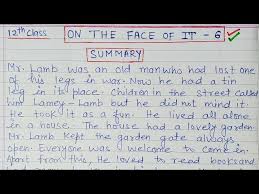 12th class
ON THE FACE OF IT - 6
SUMMARY
Mr. Lamb was an old man who had lost one
of his legs in war. Now he had a tin
leg in it place. Children in the street called
him Lamey-Lamb but he did not mind it.
He took it as a fun. He lived all alone
in a house. The house had a lovely garden
Mr. Lamb Kept the garden gate always
open. Everyone was welcome to come in.
Apart from this, He loved to read books and